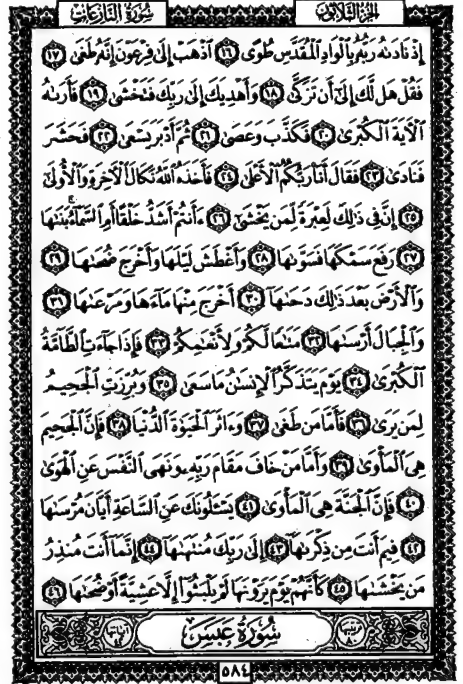 الجزء الثلاثون سورة النازعات
إِذْ نَادَىٰهُ رَبُّهُۥ بِٱلْوَادِ ٱلْمُقَدَّسِ طُوًى ١٦ ٱذْهَبْ إِلَىٰ فِرْعَوْنَ إِنَّهُۥ طَغَىٰ ١٧
فَقُلْ هَل لَّكَ إِلَىٰٓ أَن تَزَكَّىٰ ١٨ وَأَهْدِيَكَ إِلَىٰ رَبِّكَ فَتَخْشَىٰ ١٩ فَأَرَىٰهُ
ٱلْأٓيَةَ ٱلْكُبْرَىٰ ٢٠ فَكَذَّبَ وَعَصَىٰ ٢١ ثُمَّ أَدْبَرَ يَسْعَىٰ ٢٢ فَحَشَرَ
فَنَادَىٰ ٢٣ فَقَالَ أَنَا۠ رَبُّكُمُ ٱلْأَعْلَىٰ ٢٤ فَأَخَذَهُ ٱللَّهُ نَكَالَ ٱلْأٓخِرَةِ وَٱلْأُولَىٰٓ
٢٥ إِنَّ فِى ذَٰلِكَ لَعِبْرَةً لِّمَن يَخْشَىٰٓ ٢٦ ءَأَنتُمْ أَشَدُّ خَلْقًا أَمِ ٱلسَّمَآءُ ۚ بَنَىٰهَا
٢٧ رَفَعَ سَمْكَهَا فَسَوَّىٰهَا ٢٨ وَأَغْطَشَ لَيْلَهَا وَأَخْرَجَ ضُحَىٰهَا ٢٩
وَٱلْأَرْضَ بَعْدَ ذَٰلِكَ دَحَىٰهَآ ٣٠ أَخْرَجَ مِنْهَا مَآءَهَا وَمَرْعَىٰهَا ٣١
وَٱلْجِبَالَ أَرْسَىٰهَا ٣٢ مَتَٰعًا لَّكُمْ وَلِأَنْعَٰمِكُمْ ٣٣ فَإِذَا جَآءَتِ ٱلطَّآمَّةُ
ٱلْكُبْرَىٰ ٣٤ يَوْمَ يَتَذَكَّرُ ٱلْإِنسَٰنُ مَا سَعَىٰ ٣٥ وَبُرِّزَتِ ٱلْجَحِيمُ
لِمَن يَرَىٰ ٣٦ فَأَمَّا مَن طَغَىٰ ٣٧ وَءَاثَرَ ٱلْحَيَوٰةَ ٱلدُّنْيَا ٣٨ فَإِنَّ ٱلْجَحِيمَ
هِىَ ٱلْمَأْوَىٰ ٣٩ وَأَمَّا مَنْ خَافَ مَقَامَ رَبِّهِۦ وَنَهَى ٱلنَّفْسَ عَنِ ٱلْهَوَىٰ
٤٠ فَإِنَّ ٱلْجَنَّةَ هِىَ ٱلْمَأْوَىٰ ٤١ يَسْـَٔلُونَكَ عَنِ ٱلسَّاعَةِ أَيَّانَ مُرْسَىٰهَا
٤٢ فِيمَ أَنتَ مِن ذِكْرَىٰهَآ ٤٣ إِلَىٰ رَبِّكَ مُنتَهَىٰهَآ ٤٤ إِنَّمَآ أَنتَ مُنذِرُ
مَن يَخْشَىٰهَا ٤٥ كَأَنَّهُمْ يَوْمَ يَرَوْنَهَا لَمْ يَلْبَثُوٓا۟ إِلَّا عَشِيَّةً أَوْ ضُحَىٰهَا ٤٦
سُورَةُ عَبَسَ
٥٨٤